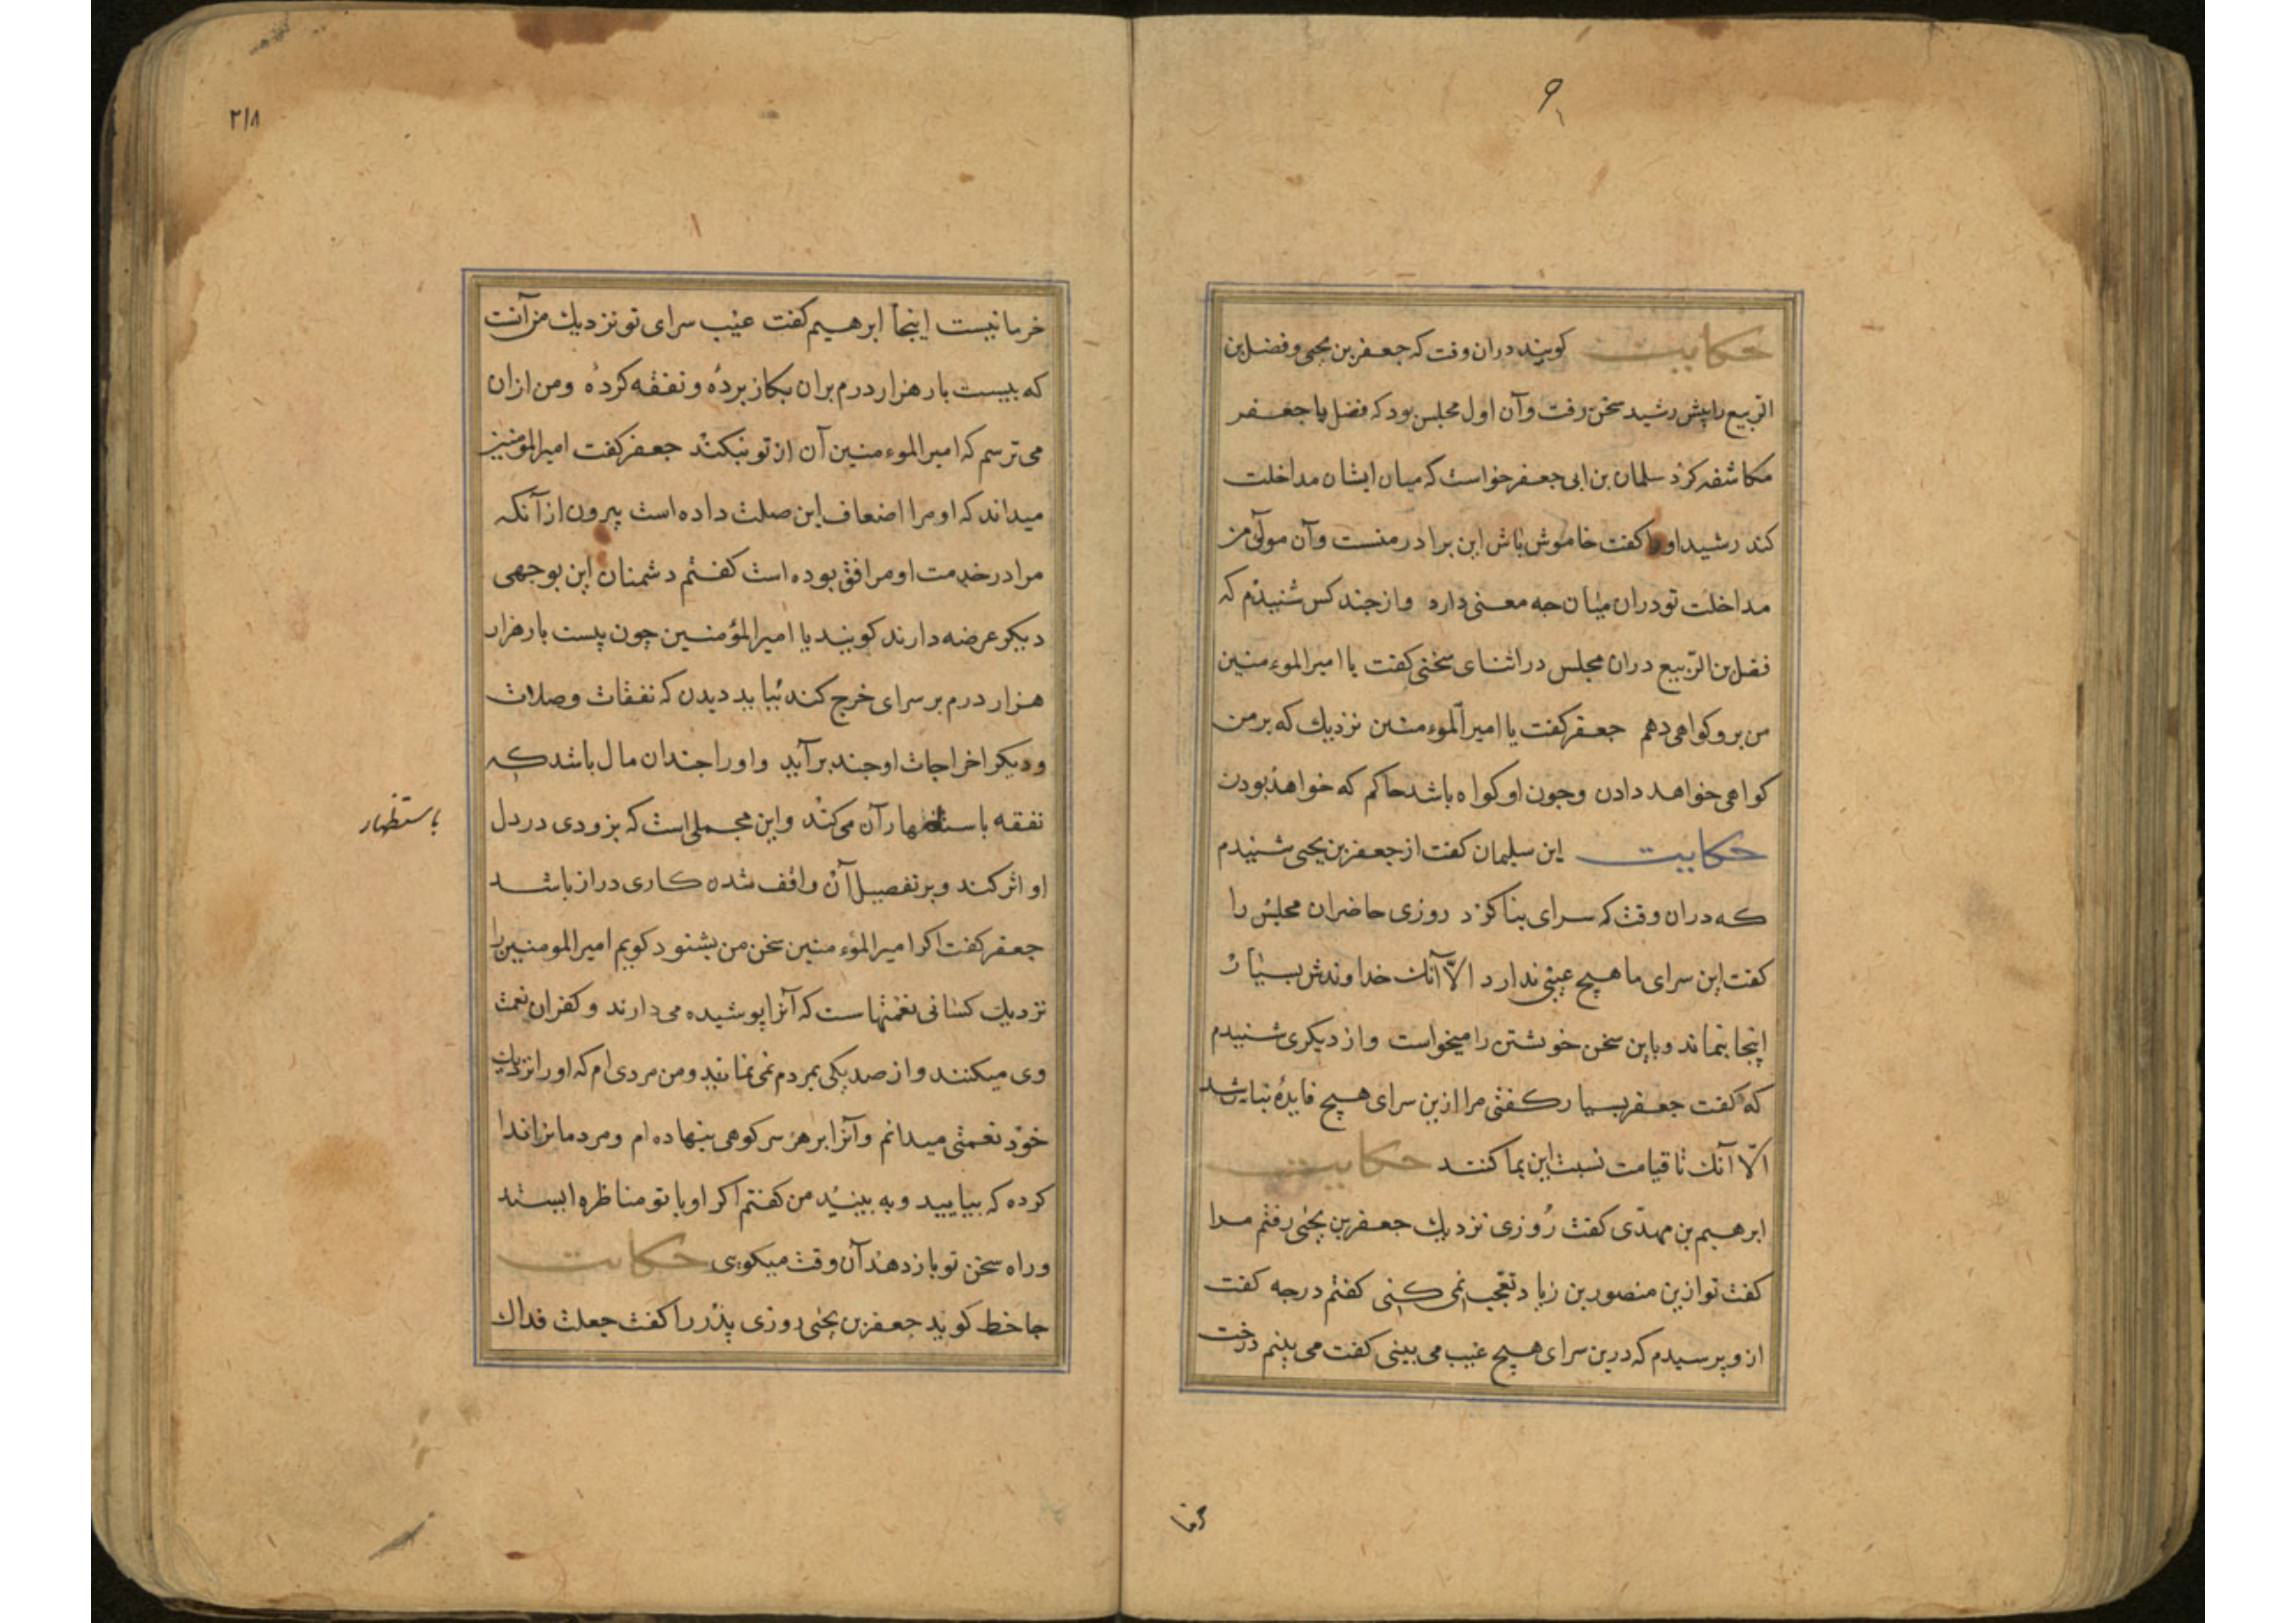 حکایت کویند دران وقت که جعفر بن یحیی و فضل بن
الربیع را پیش رشید سخن رفت وآن اول مجلس بود که فضل با جعفر
مکاشفه کرد سلمان بن ابی جعفر خواست که میان ایشان مداخلت
کند رشید او را کفت خاموش باش این برادر منست وآن مولی من
مداخلت تو دران میان جه معنی دارد واز جند کس شنیدم که
فضل بن الربیع دران مجلس در اثنای سخنی کفت یا امیر الموءمنین
من برو کواهی دهم جعفر کفت یا امیر الموءمنین نزدیک که بر من
کواهی خواهد داذن وجون او کواه باشد حاکم که خواهذ بودن
حکایت ابن سلیمان کفت از جعفر بن یحیی شنیدم
که دران وقت که سرای بنا کرد روزی حاضران مجلس را
کفت این سرای ما هیچ عیبی ندارد الّا آنک خداوندش بسیار
اینجا بنماند وباین سخن خوشتن را میخواست واز دیکری شنیدم
که کفت جعفر بسیار کفتی مرا ازین سرای هیچ فایدهٔ نباشد
الّا آنک تا قیامت نسبت این بما کنند حکایت
ابرهیم بن مهدی کفت روزی نزدیک جعفر بن یحیی رفتم مرا
کفت تو ازین منصور بن زیاد تعجب نمی کنی کفتم در جه کفت
ازو پرسیدم که درین سرای هیچ عیب می بینی کفت می بینم درخت
خرما
۲۱۸
خرما نیست اینجا ابرهیم کفت عیب سرای تو نزدیک من آنست
که بیست بار هزار درم بران بکار بردهٔ و نفقه کردهٔ ومن ازان
می ترسم که امیر الموءمنین آن از تو بنکند جعفر کفت امیر المؤمنین
میداند که او مرا اضعاف این صلت داده است بیرون از آنکه
مرا در خدمت او مرافق بوده است کفتم دشمنان این بوجهی
دیکر عرضه دارند کویند یا امیر المؤمنین چون بیست بار هزار
هزار درم بر سرای خرج کند بباید دیدن که نفقات وصلات
ودیکر اخراجات او جند برآید واو را جندان مال باشد که
نفقه باستظهار آن می کند واین مجملی است که بزودی در دل
باستظهار
او اثر کند وبر تفصیل آن واقف شدن کاری دراز باشد
جعفر کفت اکر امیر الموءمنین سخن من بشنود کویم امیر المومنین را
نزدیک کسانی نعمتهاست که آنرا پوشیده می دارند و کفران نعمت
وی میکنند واز صد یکی بمردم نمی نمایند ومن مردی ام که او را نزدیک
خود نعمتی میدانم وآنرا بر هر سر کوهی بنهاده ام ومردمانرا ندا
کرده که بیایید وبه بینید من کفتم اکر او با تو مناظره ایستد
وراه سخن تو باز دهد آن وقت میکویی حکایت
جاحظ کوید جعفر بن یحیی روزی پدر را کفت جعلت فداک